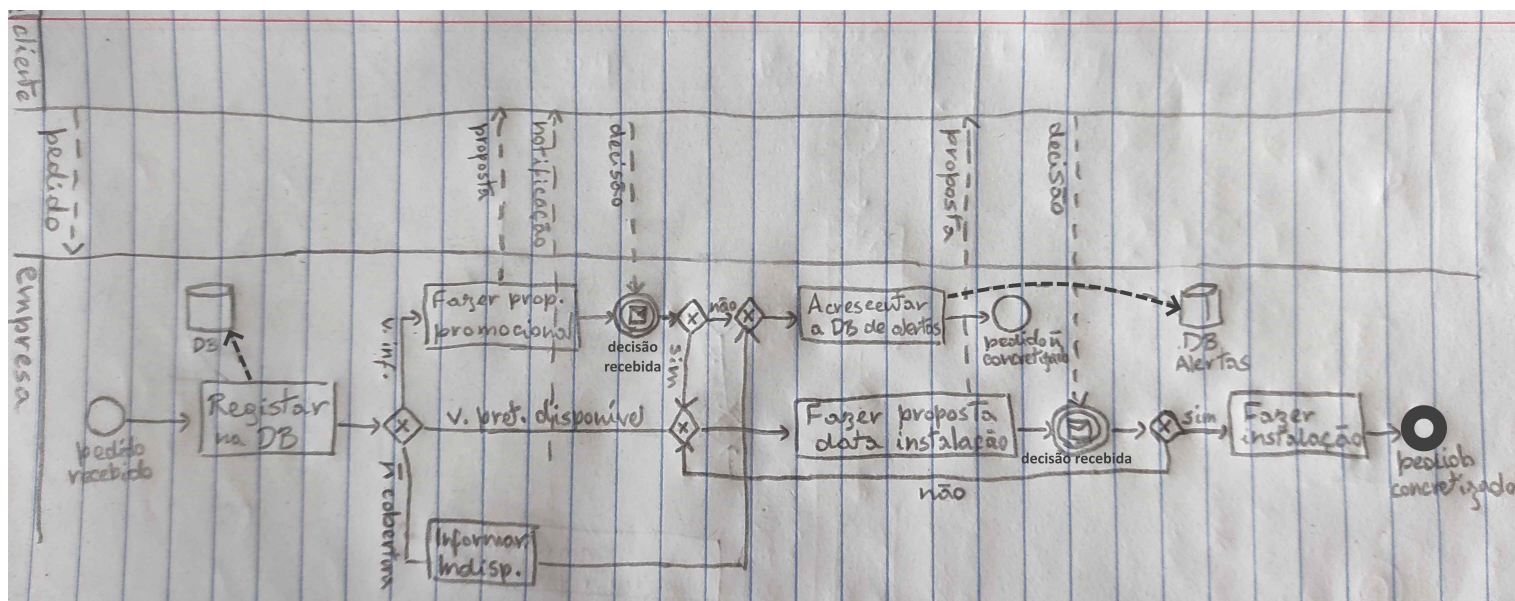 cliente
pedido
proposta
notificação
decisão
proposta
decisão
empresa
pedido
recebido
DB
Registar
na DB
v. inf.
v. pret. disponível
ñ cobertura
Fazer prop.
promocional
decisão
recebida
não
sim
Informar
Indisp.
Acrescentar
a DB de alertas
pedido ñ
concretizado
DB
Alertas
Fazer proposta
data instalação
decisão recebida
sim
não
Fazer
instalação
pedido
concretizado